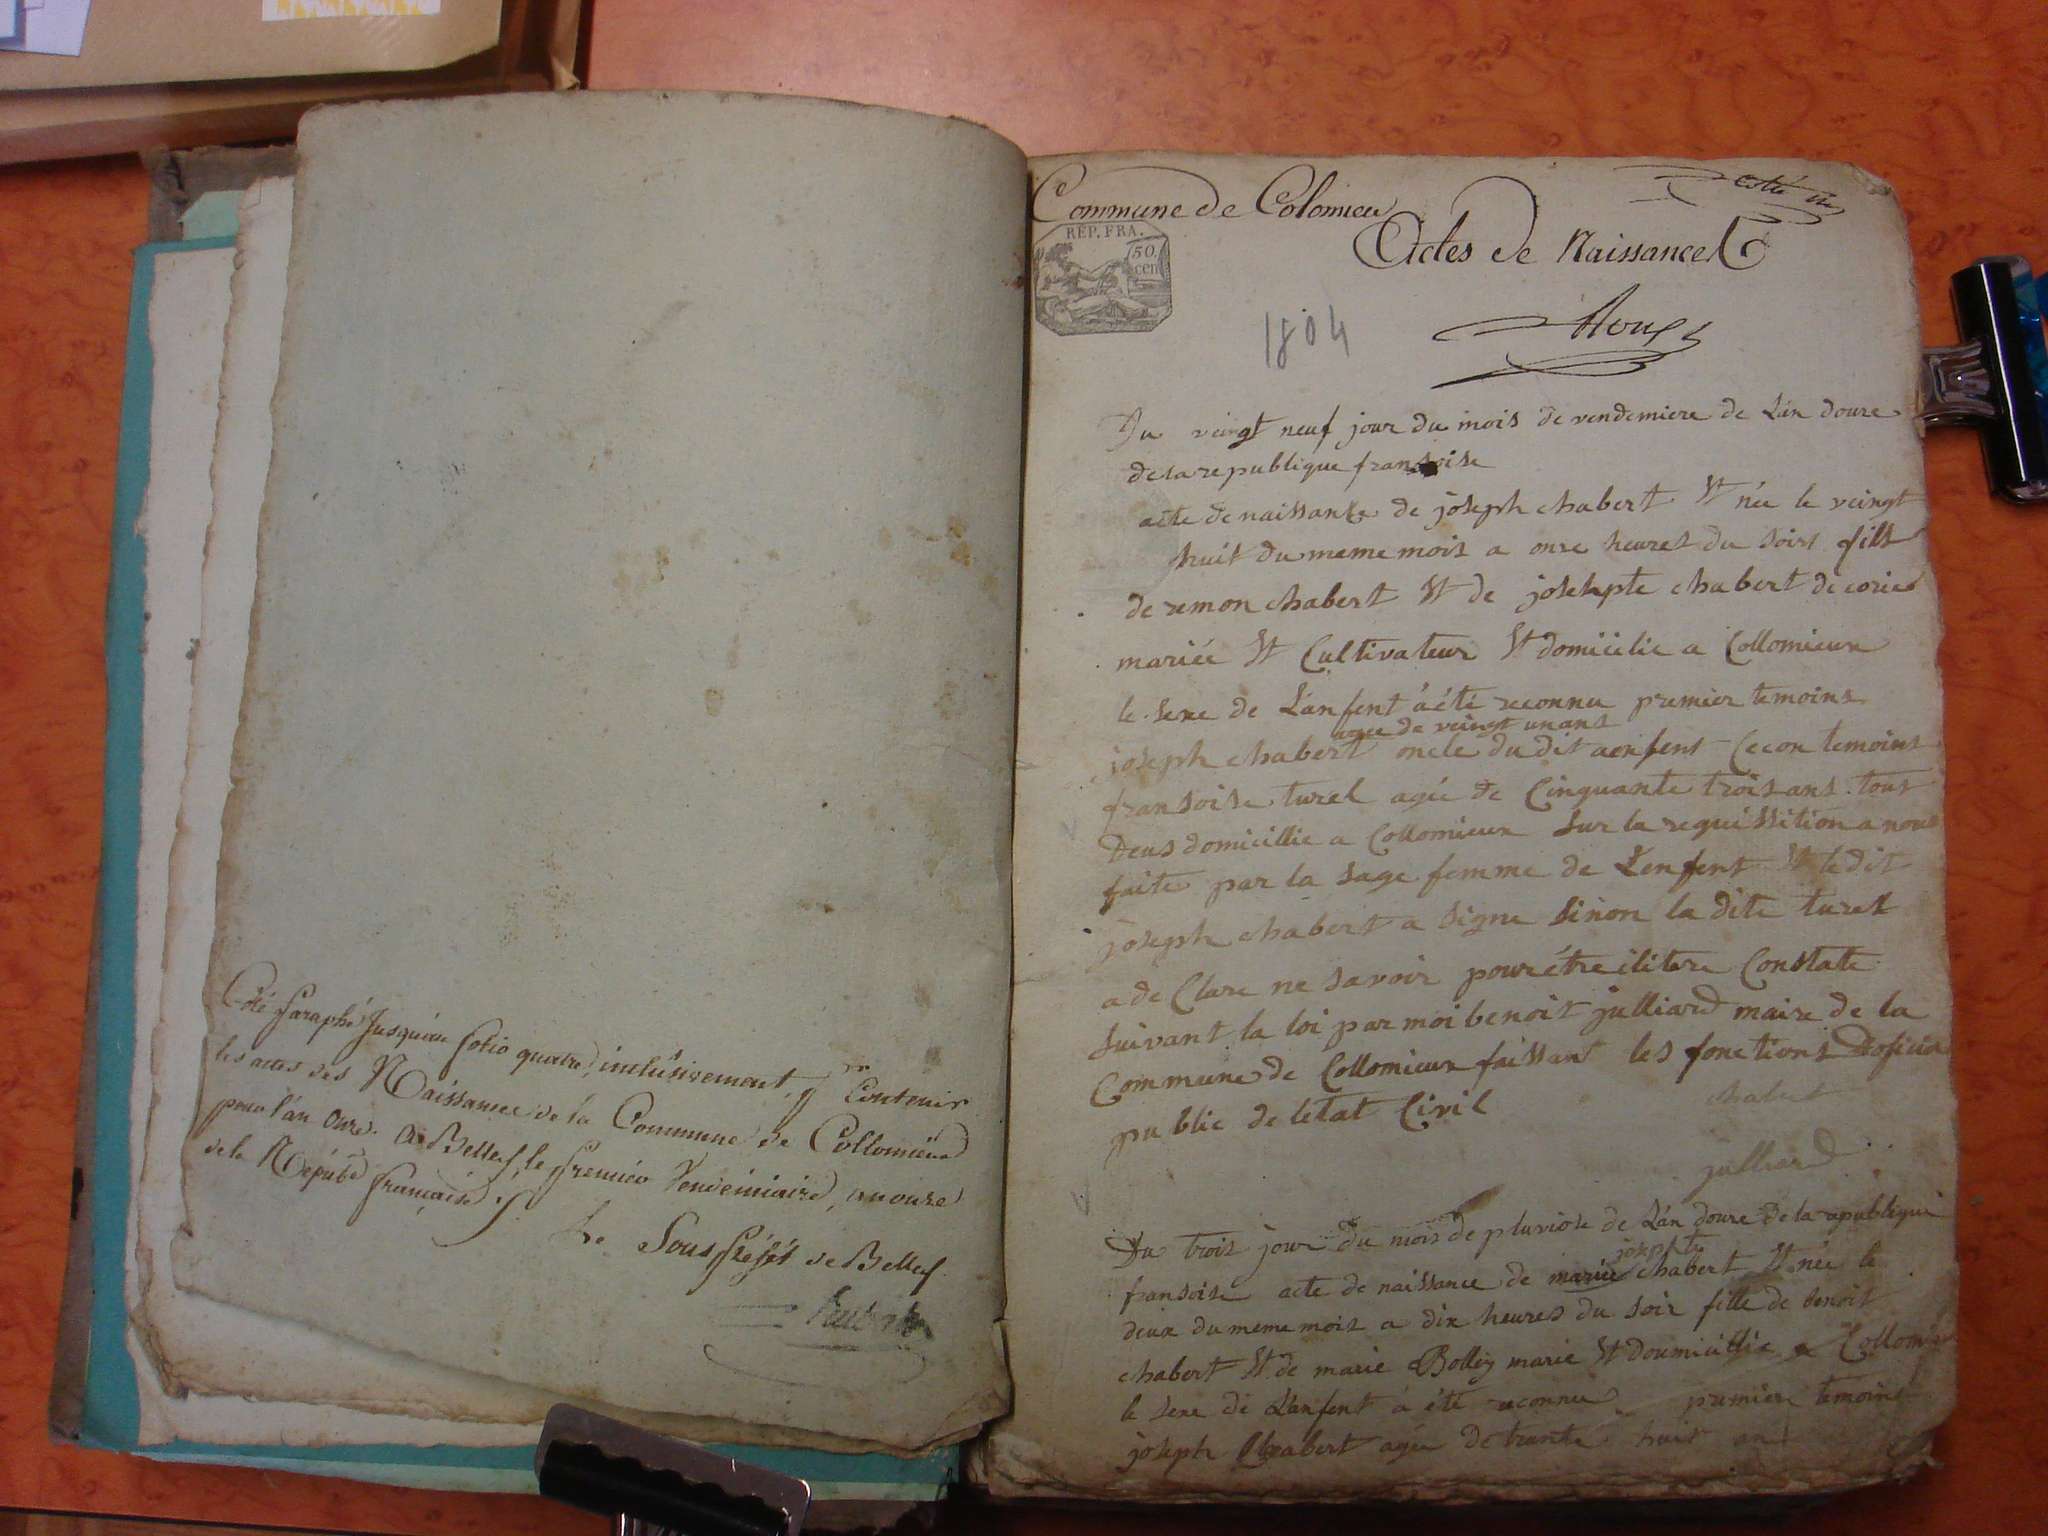 Coté Paraphé Jusqu'au folio quatre, inclusivement, pr Contenir
les actes des Naissance de la Commune de Collomieux
pour l'an onze. A Belley, le premier Vendemiaire, an onze
de la Répub. française.
Le Sous Préfet de Belley
Commune de Colomieu
Actes de Naissance
REP. FRA.
50
cen
1804
Roux
Du veingt neuf jour du mois de vendemiere de L'an douze
de la republique fransoise
acte de naissanse de joseph chabert et née le veingt
huit du meme mois a onze heures du soirs fils
de remon chabert et de josehpte chabert de
mariée et Cultivateur et domicilie a Collomieux
le sexe de L'anfent à été reconnu premier temoins
agee de veingt un ans
joseph chabert oncle du dit aenfens Cecon temoins
fransoise turel agée de Cinquante trois ans tous
Deus domicillie a Collomieux sur la requissition a nous
faite par la sage femme de L'enfent et le dit
joseph chabert a signe sinon la dite turel
a de Clare ne savoir pour étre ilitere Constate
suivant la loi par moi benoit julliard maire de la
Commune de Collomieux faissant les fonctions Doficié
public de letat Civil
chabert
julliard
Du trois jour du mois de pluviose de L'an douze de la republique
josephte
fransoise acte de naissance de marie chabert et née le
deux du meme mois a dix heures du soir fille de benoit
chabert et de marie Bolley marie et doumicillie a Collomi
le sexe de L'anfent à été reconnue premier temoins
joseph Chabert agée de trante huit an